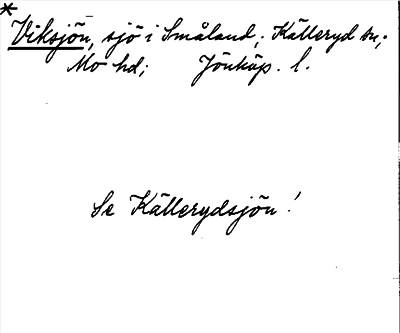 *
Viksjön, sjö i Småland; Källeryd sn;
Mo hd; Jönköp. l.
Se Källerydsjön!